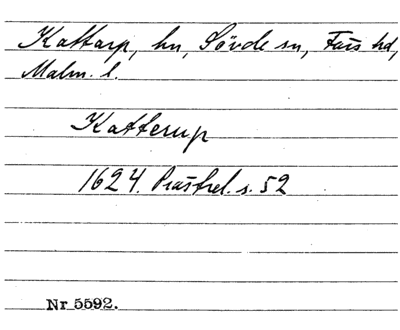 Kattarp, hn, Sövde sn, Färs hd,
Malm. l.
Katterup
1624. Prästrel. s. 52
Nr 5592.